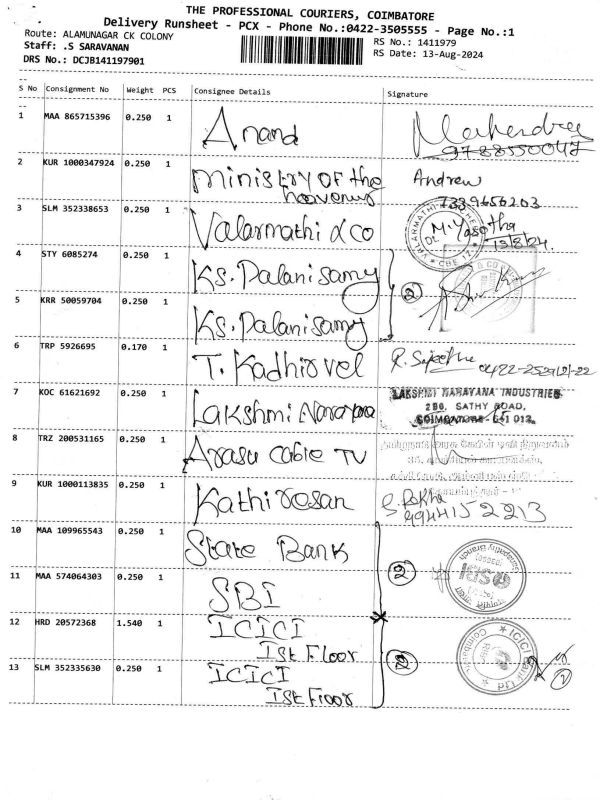 THE PROFESSIONAL COURIERS, COIMBATORE
Delivery Runsheet - PCX - Phone No.:0422-3505555 - Page No.:1
Route: ALAMUNAGAR CK COLONY
Staff: .S SARAVANAN
DRS No.: DCJB141197901
RS No.: 1411979
RS Date: 13-Aug-2024
S No Consignment No Weight PCS Consignee Details Signature
1 MAA 865715396 0.250 1 Anand
2 KUR 1000347924 0.250 1 Ministry OF the
heavens Andrew
7339656203
3 SLM 352338653 0.250 1 Valarmathi & co
13/8/24.
4 STY 6085274 0.250 1 Ks. Palanisamy
2
5 KRR 50059704 0.250 1 Ks. Palanisamy
6 TRP 5926695 0.170 1 T. Kadhirvel
7 KOC 61621692 0.250 1 Lakshmi Narayana LAKSHMI NARAYANA INDUSTRIES
280, SATHY ROAD,
COIMBATORE - 641 012.
8 TRZ 200531165 0.250 1 Arasu cable TV
9 KUR 1000113835 0.250 1 Kathiresan
9944152213
10 MAA 109965543 0.250 1 State Bank
2
11 MAA 574064303 0.250 1 SBI
12 HRD 20572368 1.540 1 ICICI
Ist Floor
2
13 SLM 352335630 0.250 1 ICICI
Ist Floor
2